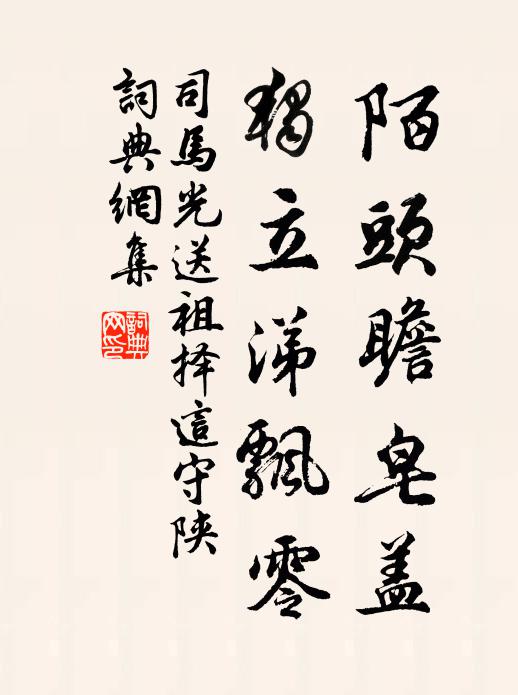 陌頭瞻皂盖
獨立涕飄零
司馬光送祖择這守陕
詞典網集
詞典網印